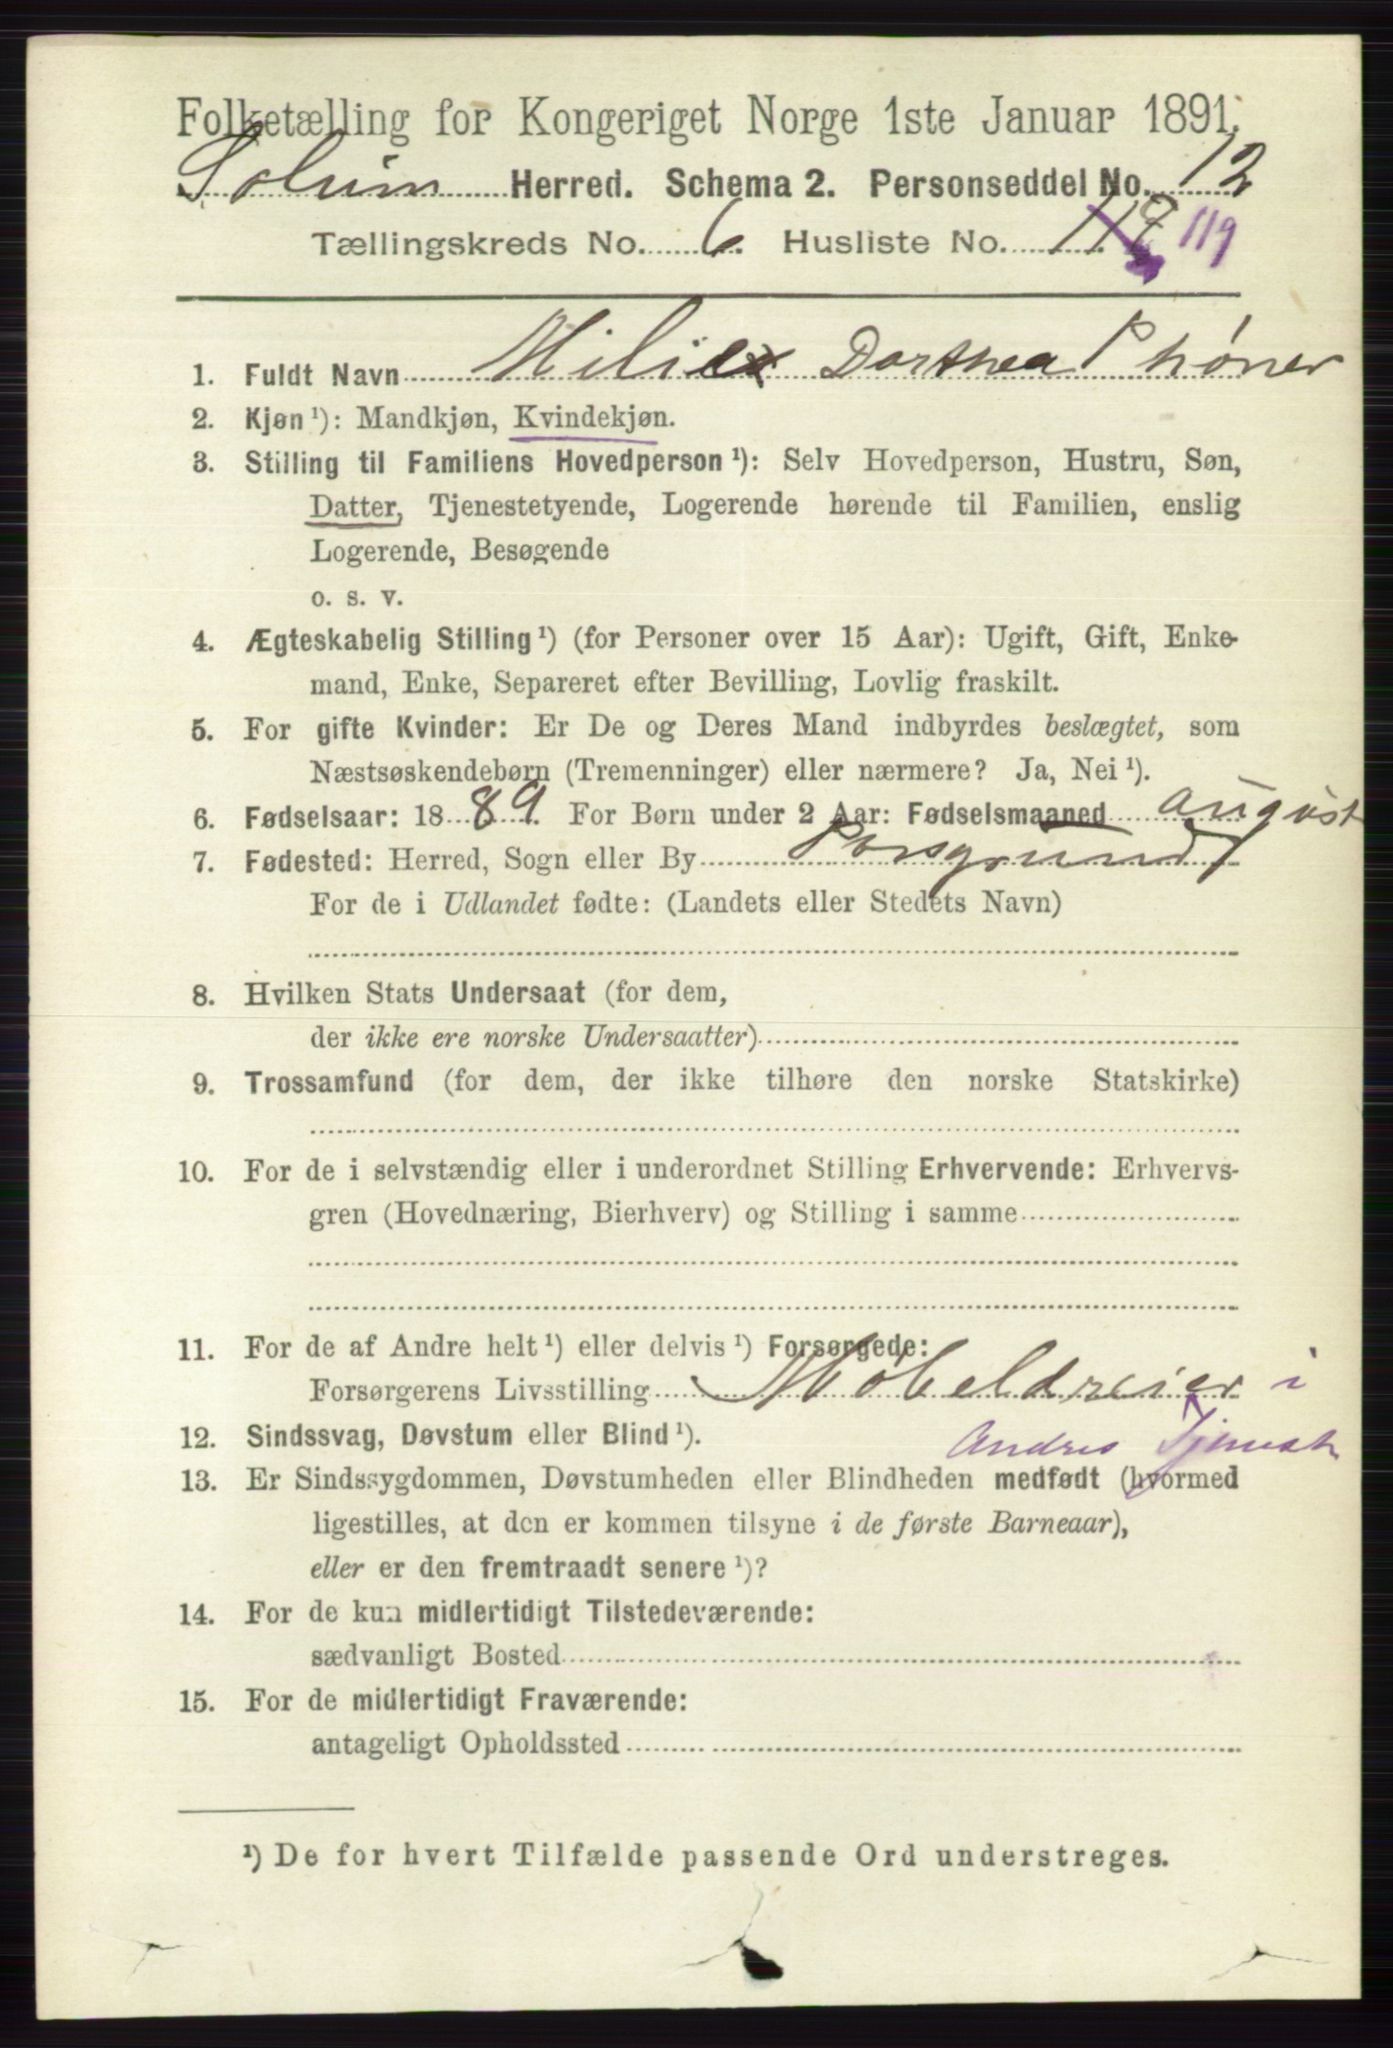 Folketælling for Kongeriget Norge 1ste Januar 1891.
Solum Herred. Schema 2. Personseddel No. 12
Tællingskreds No. 6. Husliste No. 118 119
1. Fuldt Navn Milie Dorthea Thóner
2. Kjøn ¹): Mandkjøn, Kvindekjøn.
3. Stilling til Familiens Hovedperson ¹): Selv Hovedperson, Hustru, Søn,
Datter, Tjenestetyende, Logerende hørende til Familien, enslig
Logerende, Besøgende
o. s. v.
4. Ægteskabelig Stilling ¹) (for Personer over 15 Aar): Ugift, Gift, Enke-
mand, Enke, Separeret efter Bevilling, Lovlig fraskilt.
5. For gifte Kvinder: Er De og Deres Mand indbyrdes beslægtet, som
Næstsøskendebørn (Tremenninger) eller nærmere? Ja, Nei ¹).
6. Fødselsaar: 1889. For Børn under 2 Aar: Fødselsmaaned august
7. Fødested: Herred, Sogn eller By Porsgrund
For de i Udlandet fødte: (Landets eller Stedets Navn)
8. Hvilken Stats Undersaat (for dem,
der ikke ere norske Undersaatter)
9. Trossamfund (for dem, der ikke tilhøre den norske Statskirke)
10. For de i selvstændig eller i underordnet Stilling Erhvervende: Erhvervs-
gren (Hovednæring, Bierhverv) og Stilling i samme
11. For de af Andre helt ¹) eller delvis ¹) Forsørgede:
Forsørgerens Livsstilling Møbeldreier i
Andres Tjenest
12. Sindssvag, Døvstum eller Blind ¹).
13. Er Sindssygdommen, Døvstumheden eller Blindheden medfødt (hvormed
ligestilles, at den er kommen tilsyne i de første Barneaar),
eller er den fremtraadt senere ¹)?
14. For de kun midlertidigt Tilstedeværende:
sædvanligt Bosted
15. For de midlertidigt Fraværende:
antageligt Opholdssted
¹) De for hvert Tilfælde passende Ord understreges.